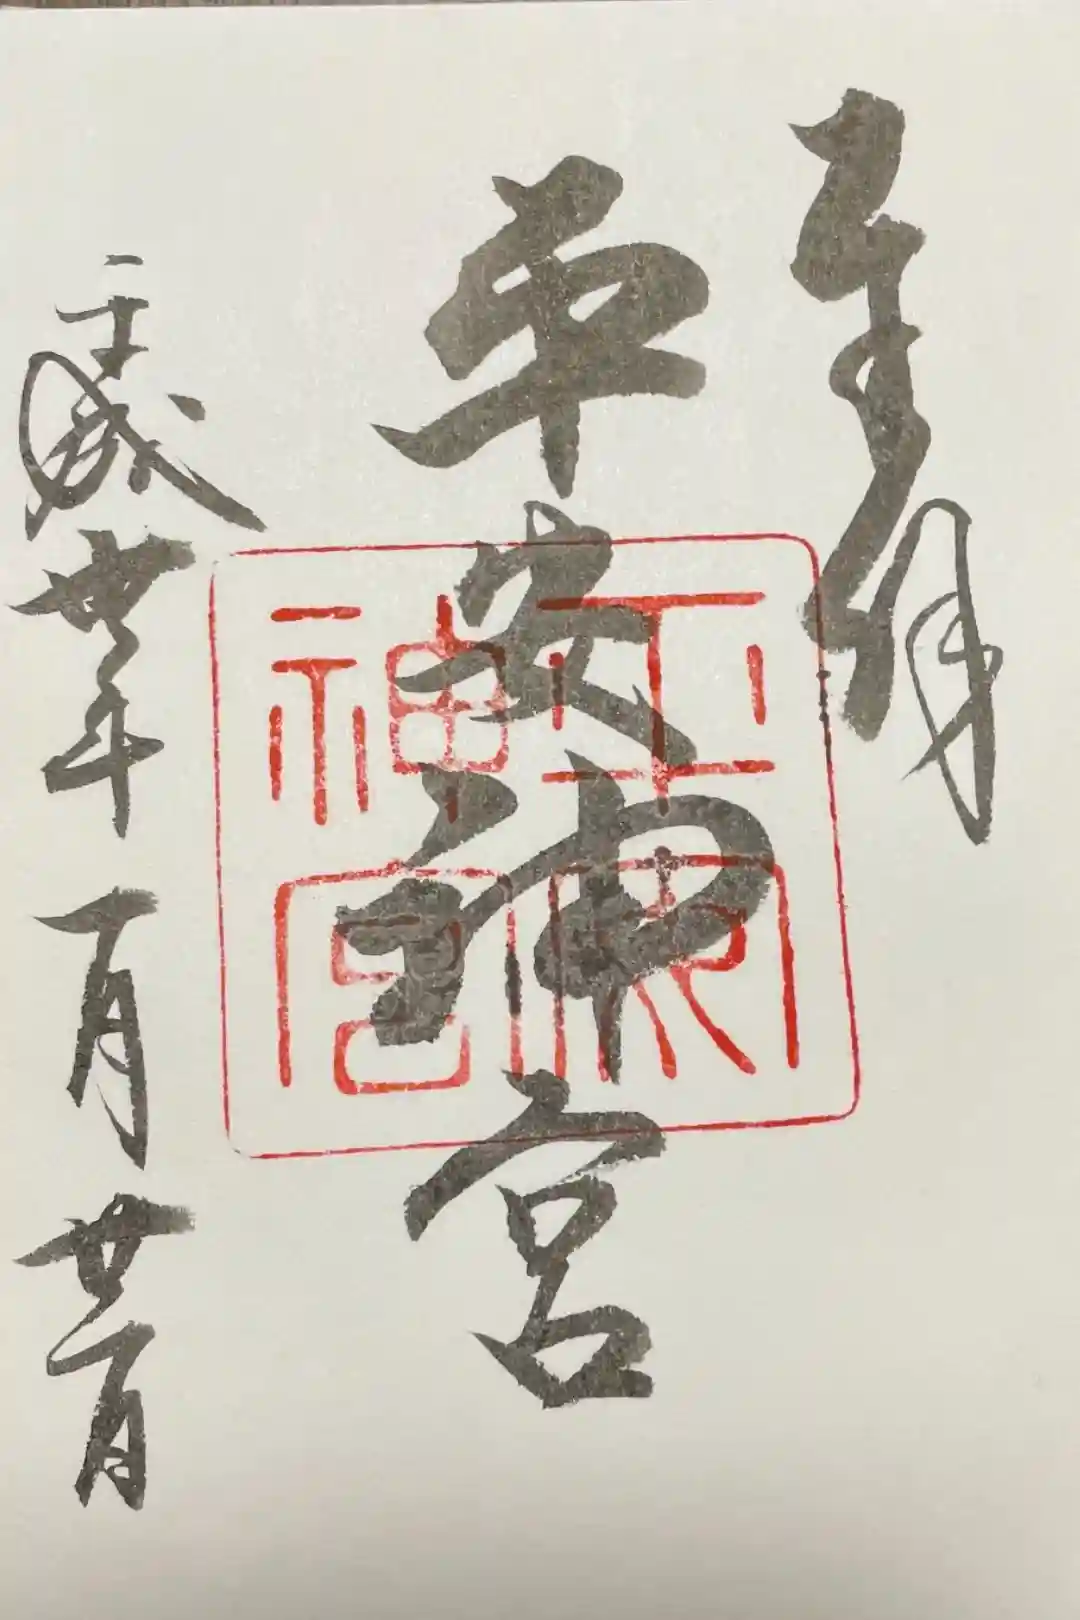 奉拝
平安神宮
平安神宮
平成廿年一月廿一日